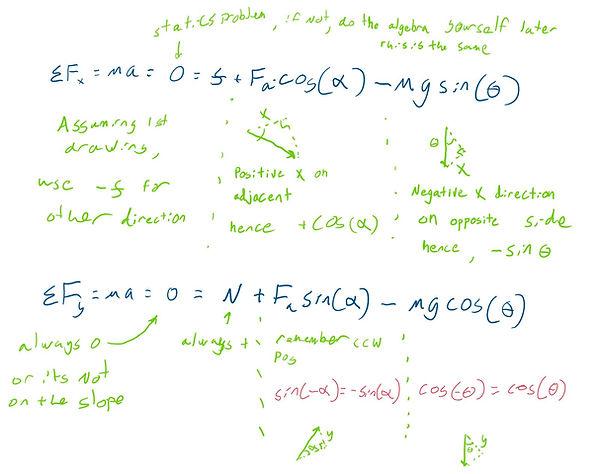 statics problem, if not, do the algebra yourself later
rhs is the same
ΣFx = ma = 0 = f + Fa cos(α) - mg sin(θ)
Assuming 1st
drawing,
use -f for
other direction
x
Positive x on
adjacent
hence + cos(α)
θ
x
Negative x direction
on opposite side
hence, - sin θ
ΣFy = ma = 0 = N + Fa sin(α) - mg cos(θ)
always 0
or its not
on the slope
always +
remember ccw
pos
sin(-α) = -sin(α)
cos(-θ) = cos(θ)
y
θ
y